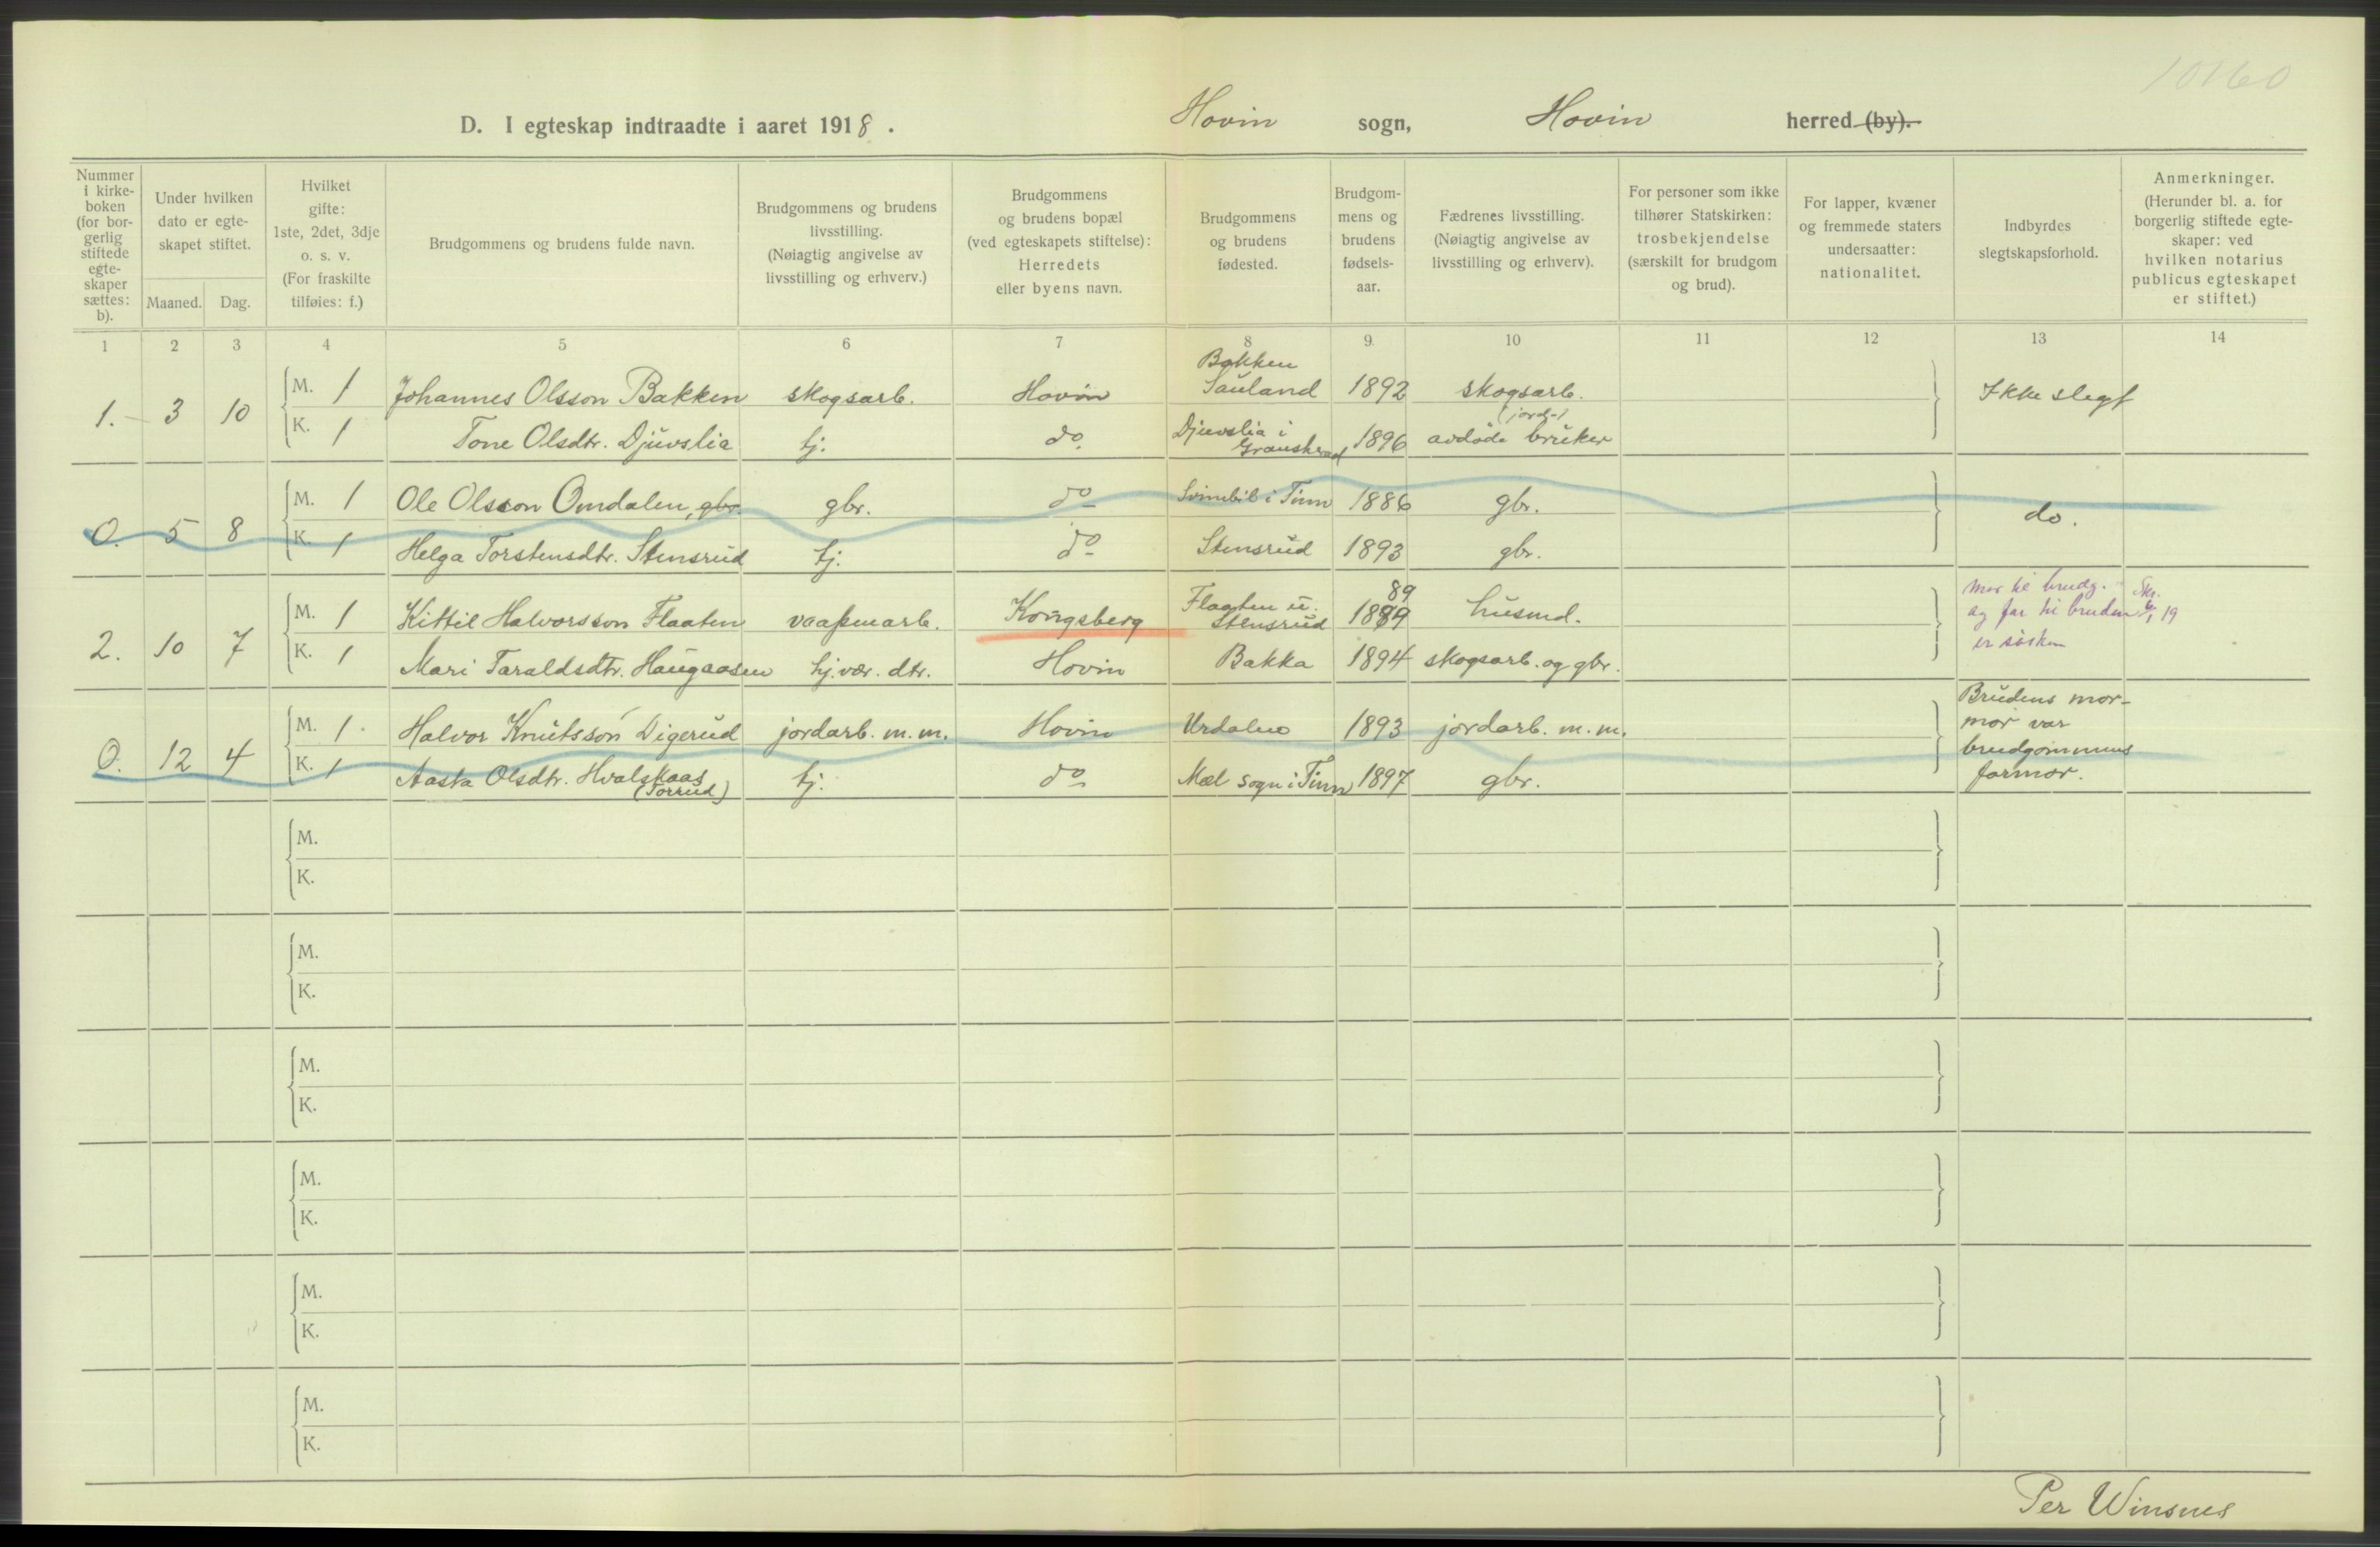 10160
D. I egteskap indtraadte i aaret 1918. Hovin sogn, Hovin herred (by).
Nummer i kirke-boken (for bor-gerlig stiftede egte-skaper sættes: b).
Under hvilken dato er egte-skapet stiftet.
Maaned. Dag.
Hvilket gifte: 1ste, 2det, 3dje o. s. v. (For fraskilte tilføies: f.)
Brudgommens og brudens fulde navn.
Brudgommens og brudens livsstilling. (Nøiagtig angivelse av livsstilling og erhverv.)
Brudgommens og brudens bopæl (ved egteskapets stiftelse): Herredets eller byens navn.
Brudgommens og brudens fødested.
Brudgom-mens og brudens fødsels-aar.
Fædrenes livsstilling. (Nøiagtig angivelse av livsstilling og erhverv).
For personer som ikke tilhører Statskirken: trosbekjendelse (særskilt for brudgom og brud).
For lapper, kvæner og fremmede staters undersaatter: nationalitet.
Indbyrdes slegtskapsforhold.
Anmerkninger. (Herunder bl. a. for borgerlig stiftede egte-skaper: ved hvilken notarius publicus egteskapet er stiftet.)
1 2 3 4 5 6 7 8 9. 10 11 12 13 14
1. 3 10 M. 1 Johannes Olsson Bakken skogsarb. Hovin Bakken Sauland 1892 skogsarb. Ikke slegt
K. 1 Tone Olsdtr. Djuvslia tj. do. Djuvslia i Gransherad 1896 avdøde (jord-) bruker
0. 5 8 M. 1 Ole Olsson Omdalen, gbr. gbr. do Svinebil i Tinn 1886 gbr. do.
K. 1 Helga Torstensdtr. Stensrud tj. do Stensrud 1893 gbr.
2. 10 7 M. 1 Kittil Halvorsson Flaaten vaapenarb. Kongsberg Flaaten u. Stensrud 1889 89 husmd.
mor til brudg. og far til bruden er søsken
Skr. 6/1 19
K. 1 Mari Taraldsdtr. Haugaasen hj. vær. dtr. Hovin Bakka 1894 skogsarb. og gbr.
0. 12 4 M. 1. Halvor Knutsson Digerud jordarb. m. m. Hovin Urdalen 1893 jordarb. m. m.
Brudens mor-
mor var
brudgommens
farmor.
K. 1 Aasta Olsdtr. Hvalskaas (Torrud) tj. do Mæl sogn i Tinn 1897 gbr.
M.
K.
M.
K.
M.
K.
M.
K.
M.
K.
M.
K.
Per Winsnes